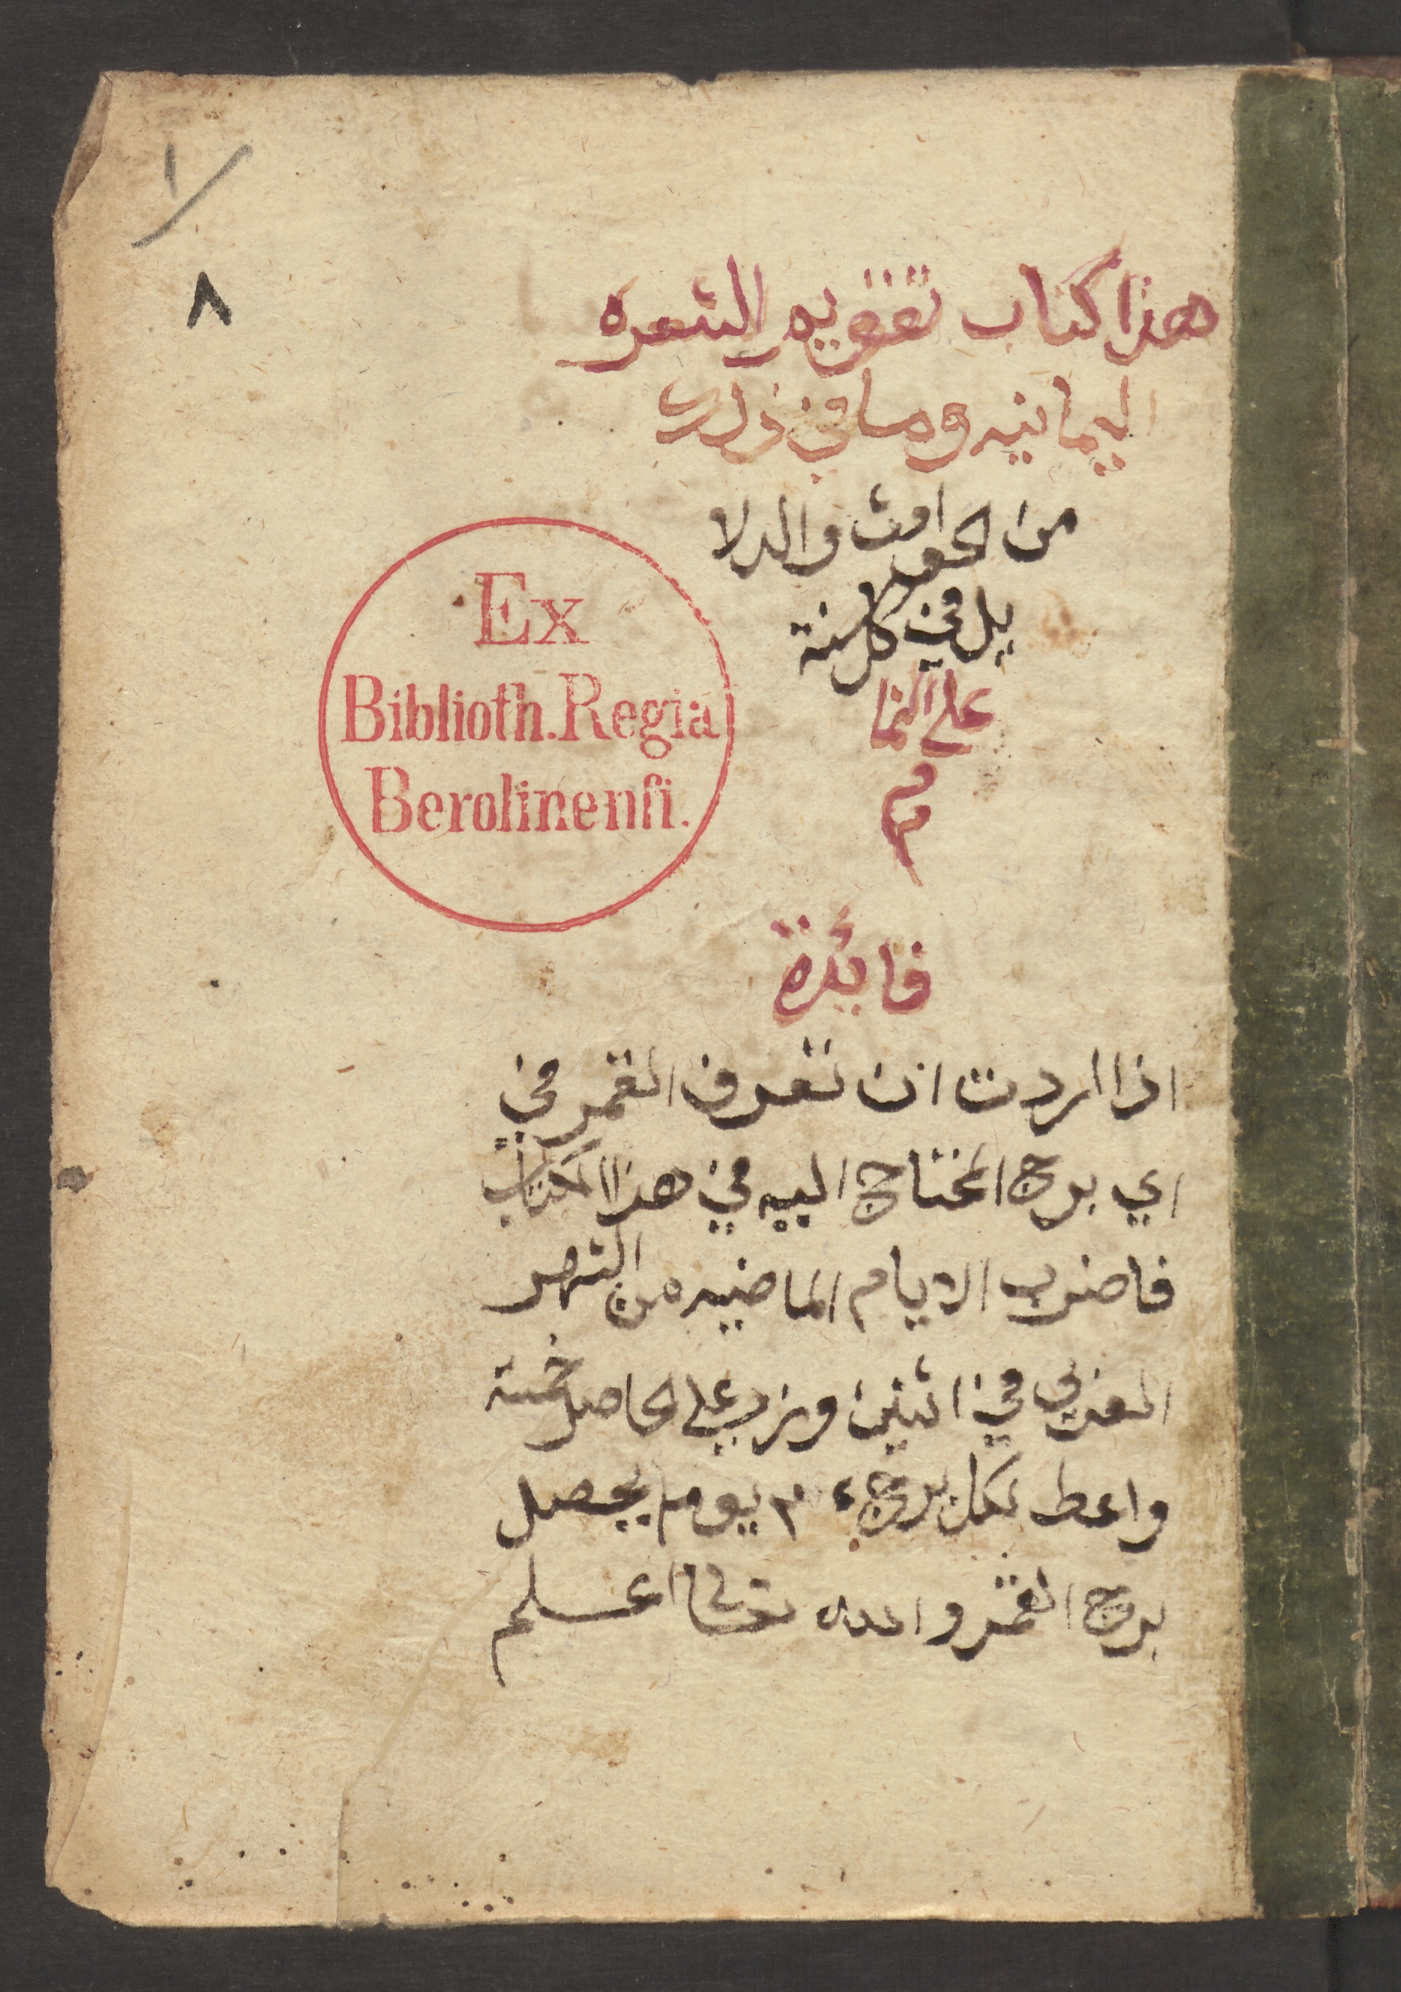 ١
٨
هذا كتاب تقويم الشعره
اليمانيه وما في ذلك
من الحوادث والدلا
يل في كل سنة
علي التما
م م
Ex
Biblioth. Regia
Berolinensi.
فائدة
اذا اردت ان تعرف القمر في
اي برج المحتاج اليه في هذا الكتاب
فاضرب الايام الماضيه من الشهر
العربي في اثنين وزد علي الحاصل خمسة
واعط لكل برج يوم يحصل
برج القمر والله تعالى اعلم